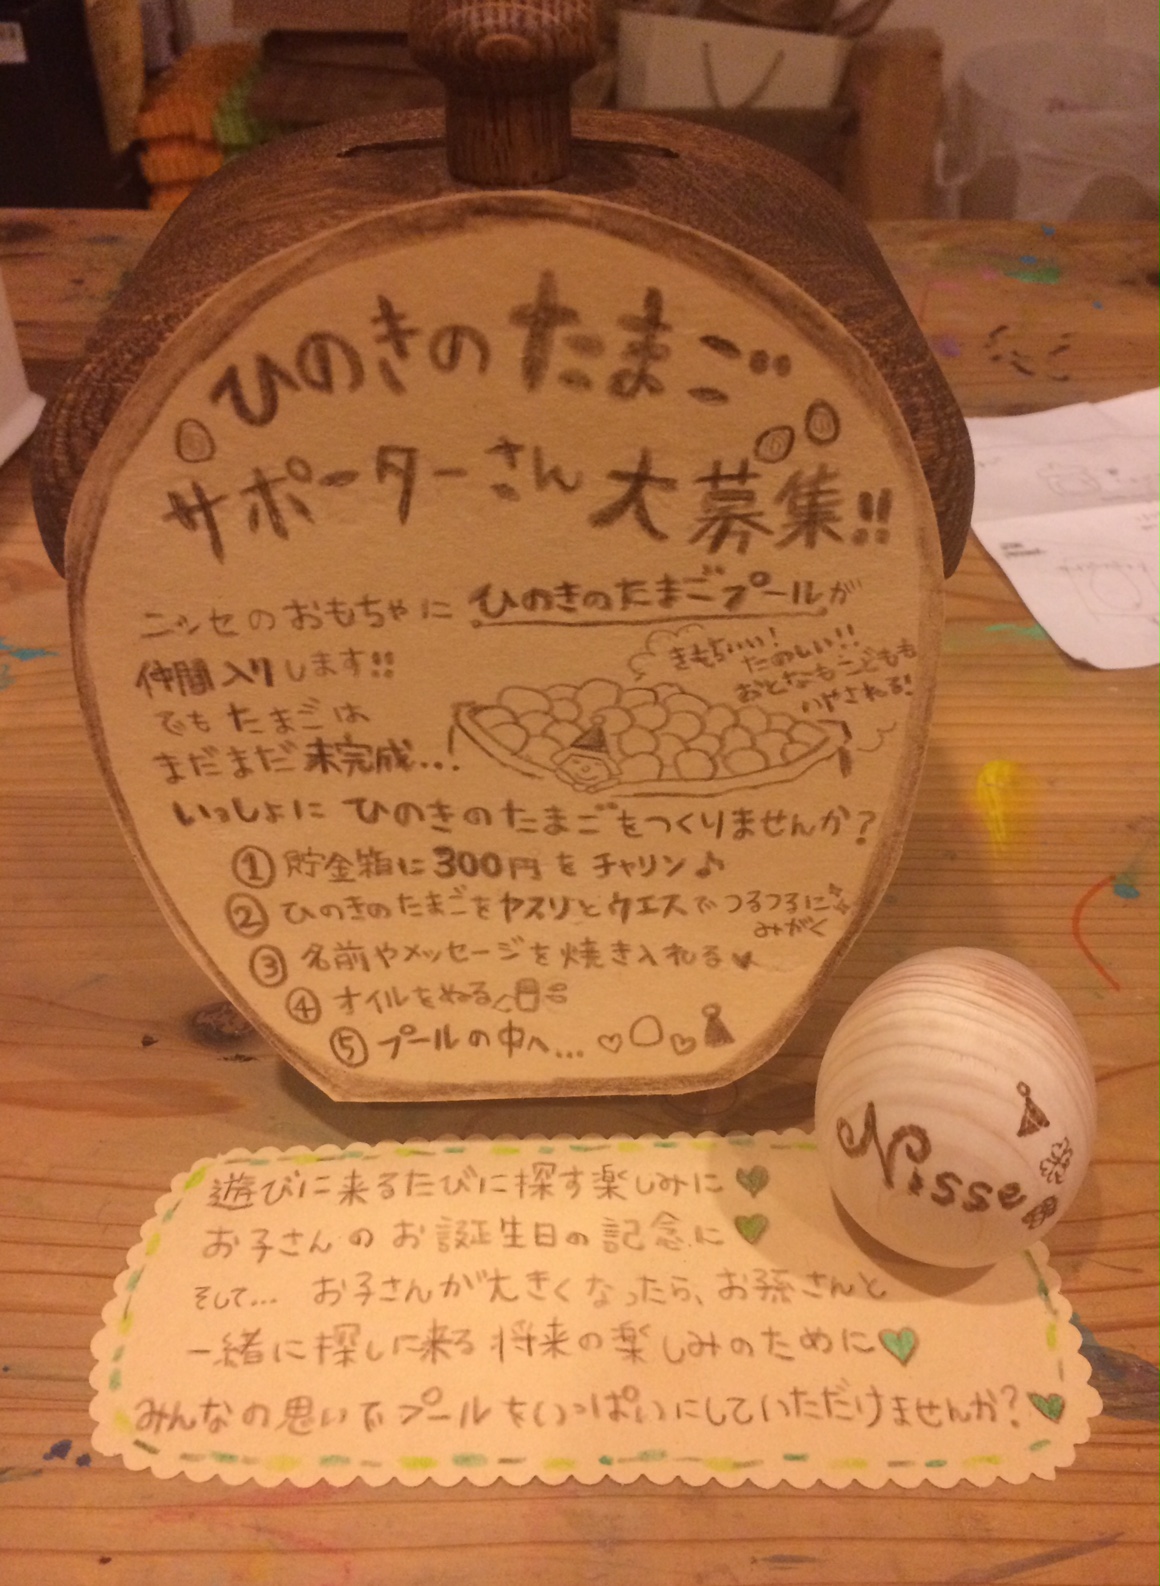 ひのきのたまご
サポーターさん大募集!!
ニッセのおもちゃに ひのきのたまごプールが
仲間入りします!!
きもちいい!
たのしい!!
おとなもこどもも
いやされる!
でもたまごは
まだまだ未完成...!
いっしょに ひのきのたまごをつくりませんか?
① 貯金箱に300円をチャリン♪
② ひのきのたまごをヤスリとウエスでつるつるに
みがく
③ 名前やメッセージを焼き入れる♥
④ オイルをぬる
⑤ プールの中へ... ♡ ♡
Nisse
遊びに来るたびに探す楽しみに♥
お子さんのお誕生日の記念に♥
そして... お子さんが大きくなったら、お孫さんと
一緒に探しに来る将来の楽しみのために♥
みんなの思いでプールをいっぱいにしていただけませんか?♥